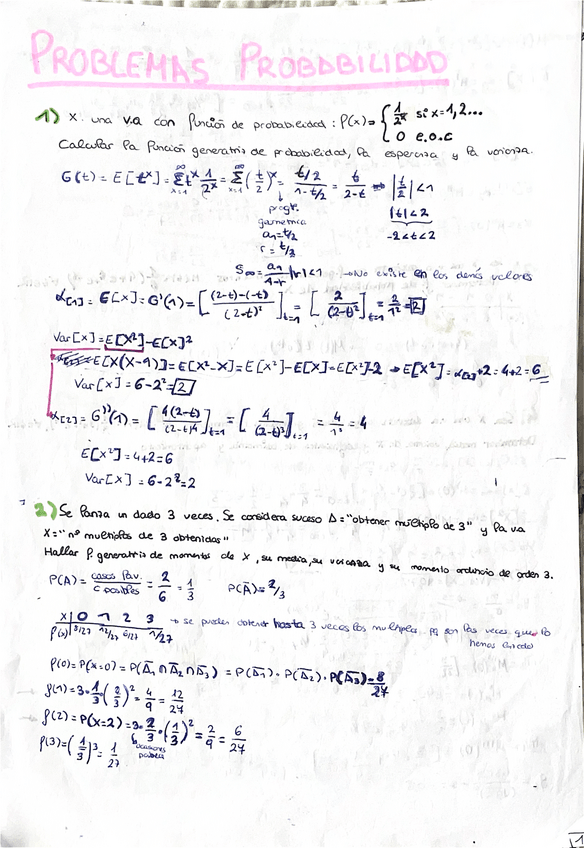 PROBLEMAS PROBABILIDAD
1) X una v.a con función de probabilidad: P(x)= { 1/2^x si x=1,2...
0 e.o.c
Calcular la función generatriz de probabilidad, la esperanza y la varianza.
G(t) = E[t^x] = Σ_{x=1}^∞ t^x 1/2^x = Σ_{x=1}^∞ (t/2)^x = (t/2)/(1-t/2) = t/(2-t) ⇒ |t/2|<1
progr. |t|<2
geometrica -2<t<2
a1=t/2
r=t/2
S∞ = a1/(1-r) |r|<1 → No existe en los demás valores
α[1] = E[X] = G'(1) = [((2-t)-(-t))/(2-t)^2]_{t=1} = [2/(2-t)^2]_{t=1} = 2/1^2 = 2
Var[X] = E[X^2]-E[X]^2
E[X(X-1)] = E[X^2-X] = E[X^2]-E[X] = E[X^2]-2 ⇒ E[X^2] = α[2]+2 = 4+2 = 6
Var[X] = 6-2^2 = 2
α[2] = G''(1) = [4(2-t)/(2-t)^4]_{t=1} = [4/(2-t)^3]_{t=1} = 4/1^3 = 4
E[X^2] = 4+2=6
Var[X] = 6-2^2=2
2) Se lanza un dado 3 veces. Se considera suceso A="obtener múltiplo de 3" y la va
X="nº multiplos de 3 obtenidos"
Hallar f. generatriz de momentos de X, su media, su varianza y su momento ordinario de orden 3.
P(A) = casos fav./c posibles = 2/6 = 1/3 P(Ā) = 2/3
X | 0 1 2 3 → se pueden obtener hasta 3 veces los multiplos, pq son las veces que lo
P(x) | 8/27 12/27 6/27 1/27 hemos tirado
P(0) = P(X=0) = P(Ā1 ∩ Ā2 ∩ Ā3) = P(Ā1) · P(Ā2) · P(Ā3) = 8/27
P(1) = 3 · 1/3 · (2/3)^2 = 4/9 = 12/27
P(2) = P(X=2) = 3 · 2/3 · (1/3)^2 = 2/9 = 6/27
P(3) = (1/3)^3 = 1/27
1